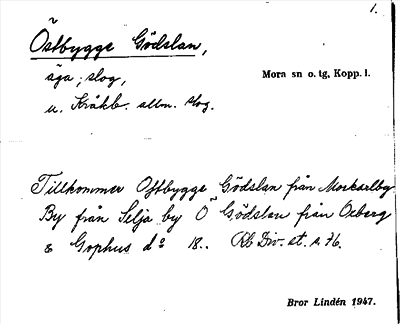 1.
Östbygge Gödslan,
äga, slog,
Mora sn o. tg, Kopp. l.
u. Kråkb. allm. slog.
Tillkommer Östbygge Gödslan från Morkarlby
By från Selja by Ö Gödslan från Oxberg
& Gophus do 18.. Div. st. s. 76.
Bror Lindén 1947.